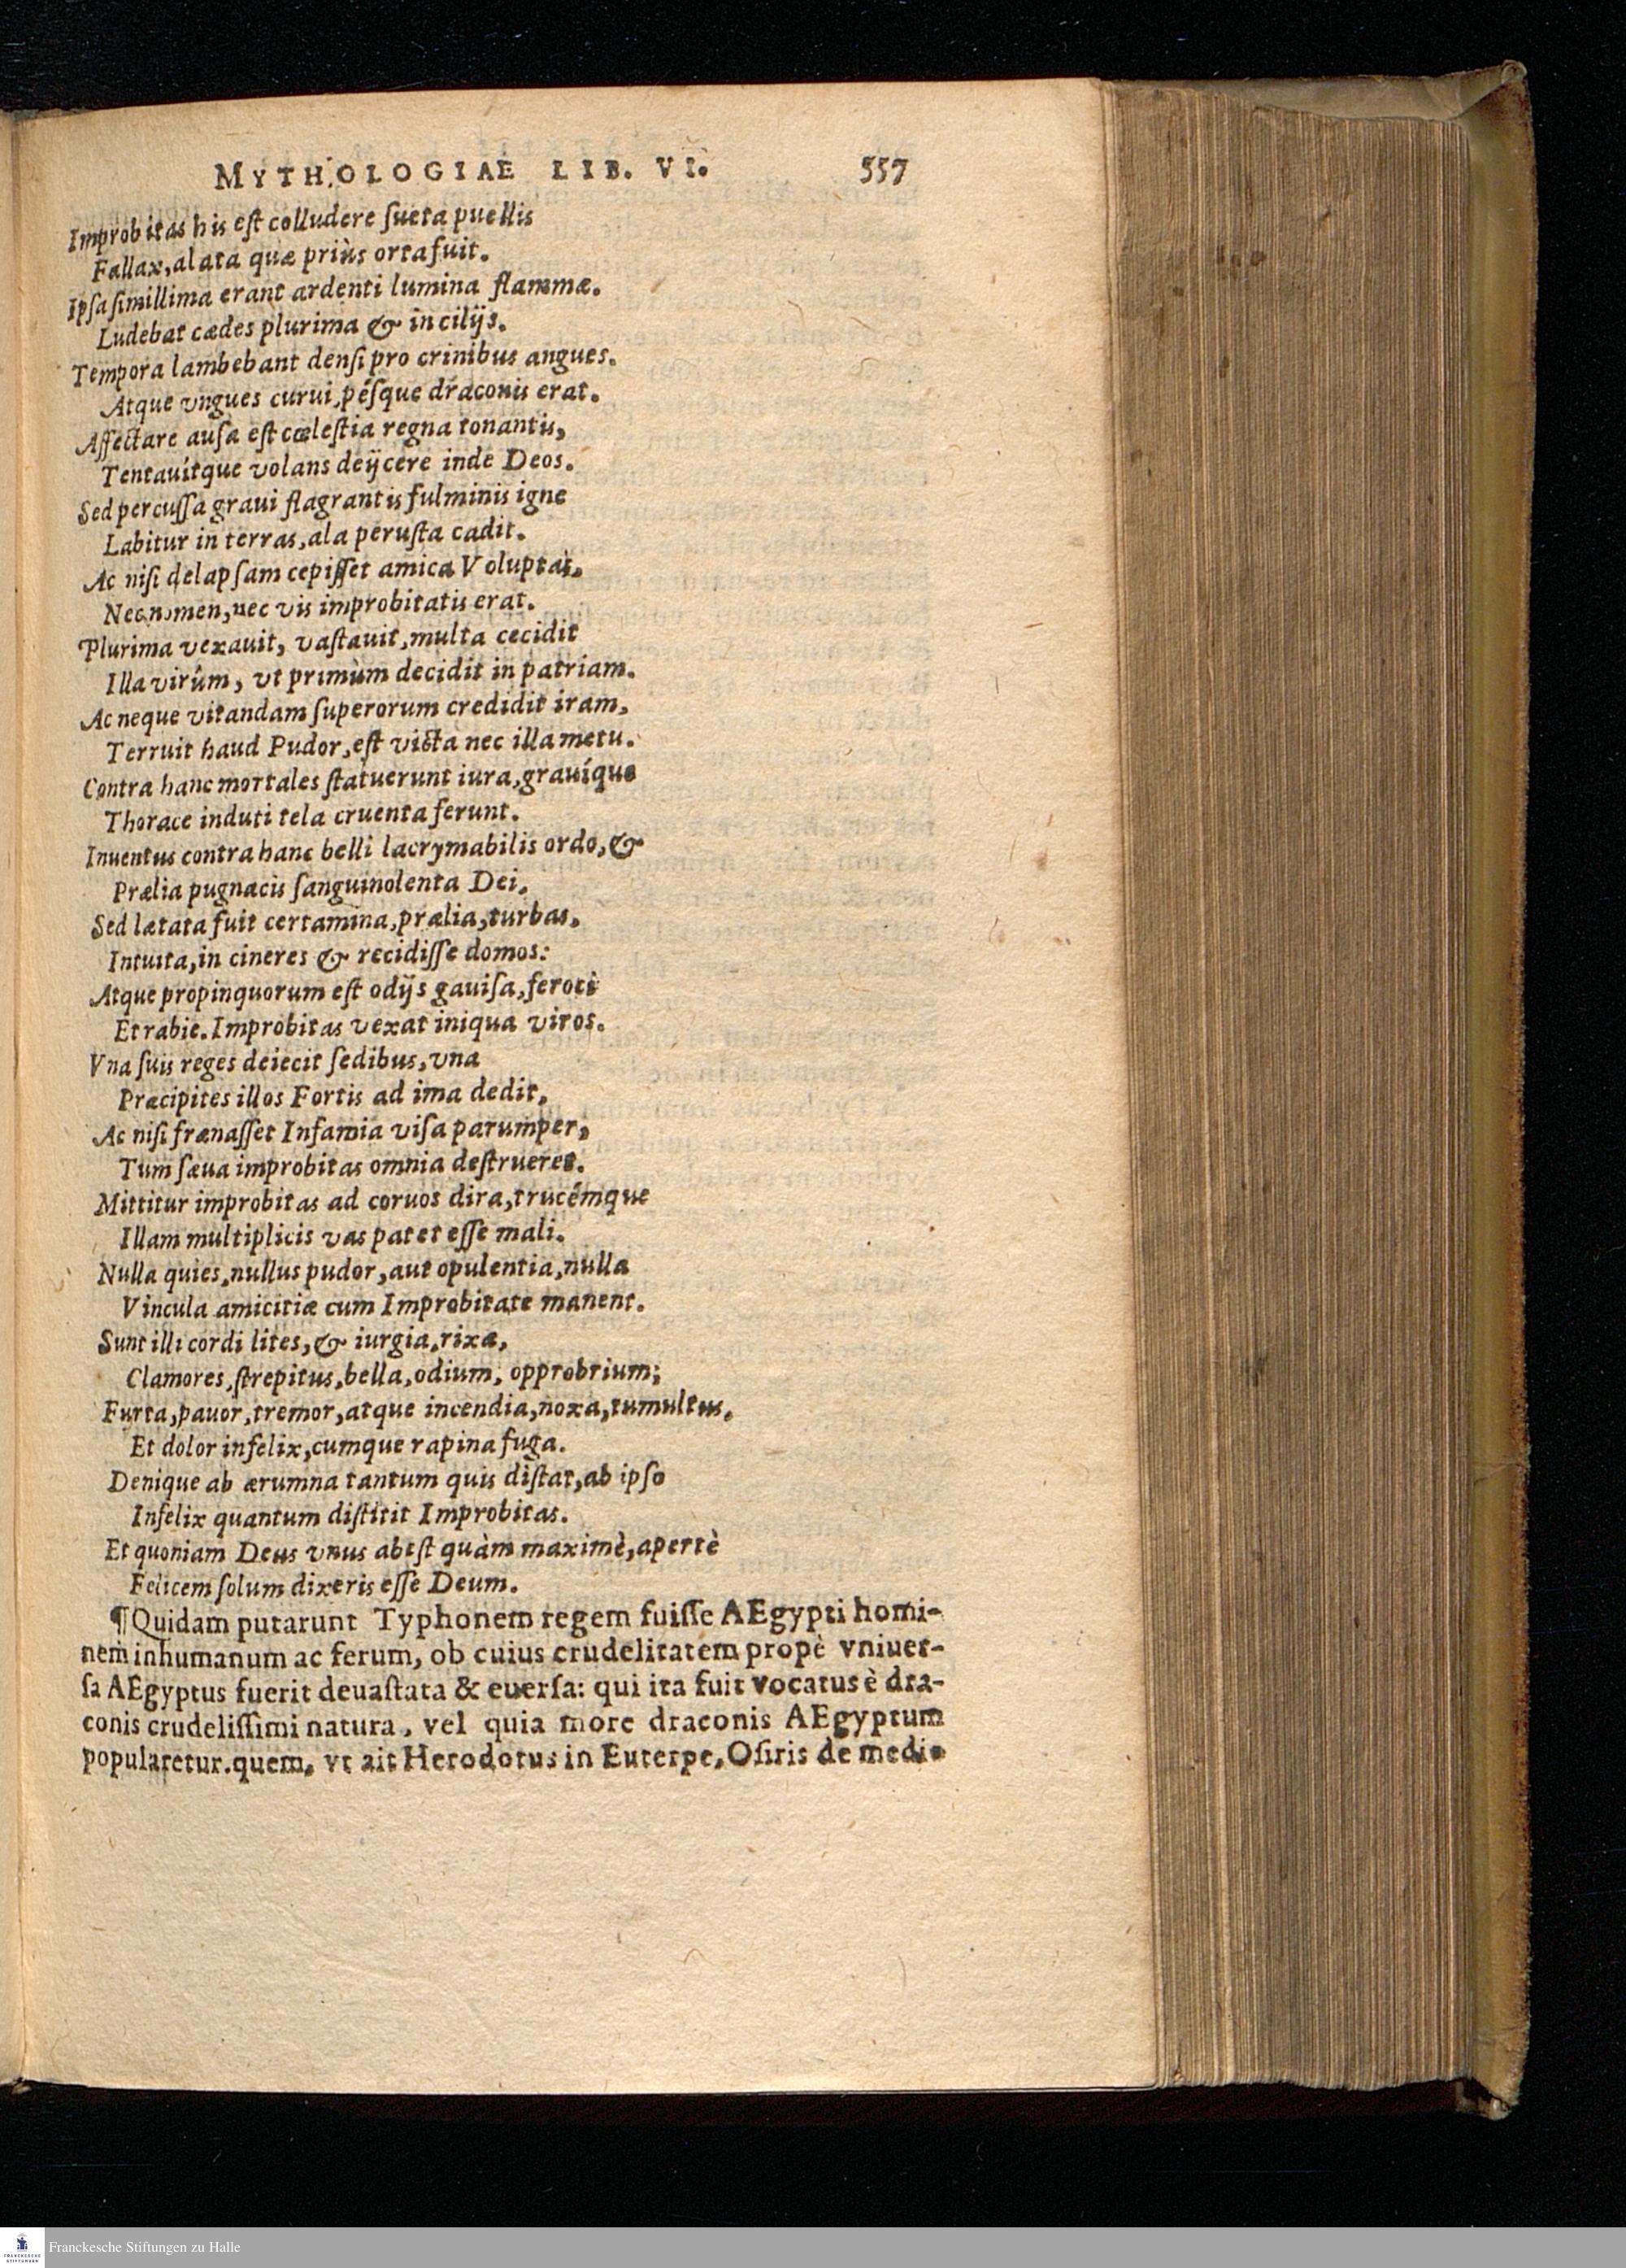 MYTHOLOGIAE LIB. VI. 557
Improbitas his eſt colludere ſueta puellis
Fallax, alata quæ priùs orta fuit.
Ipſa ſimillima erant ardenti lumina flammæ.
Ludebat cædes plurima & in cilijs.
Tempora lambebant denſi pro crinibus angues.
Atque vngues curui, péſque draconis erat.
Affectare auſa eſt cœleſtia regna tonantis,
Tentauítque volans deijcere inde Deos.
Sed percuſſa graui flagrantis fulminis igne
Labitur in terras, ala peruſta cadit.
Ac niſi delapſam cepiſſet amica Voluptas,
Nec nomen, nec vis improbitatis erat.
Plurima vexauit, vaſtauit, multa cecidit
Illa virûm, vt primùm decidit in patriam.
Ac neque vitandam ſuperorum credidit iram,
Terruit haud Pudor, eſt victa nec illa metu.
Contra hanc mortales ſtatuerunt iura, grauíque
Thorace induti tela cruenta ferunt.
Inuentus contra hanc belli lacrymabilis ordo, &
Prælia pugnacis ſanguinolenta Dei.
Sed lætata fuit certamina, prælia, turbas,
Intuita, in cineres & recidiſſe domos:
Atque propinquorum eſt odijs gauiſa, feroci
Et rabie. Improbitas vexat iniqua viros.
Vna ſuis reges deiecit ſedibus, vna
Præcipites illos Fortis ad ima dedit,
Ac niſi frænaſſet Infamia viſa parumper,
Tum ſæua improbitas omnia deſtrueret.
Mittitur improbitas ad coruos dira, trucémque
Illam multiplicis vas patet eſſe mali.
Nulla quies, nullus pudor, aut opulentia, nulla
Vincula amicitiæ cum Improbitate manent.
Sunt illi cordi lites, & iurgia, rixæ,
Clamores, ſtrepitus, bella, odium, opprobrium;
Furta, pauor, tremor, atque incendia, noxa, tumultus,
Et dolor infelix, cumque rapina fuga.
Denique ab ærumna tantum quis diſtat, ab ipſo
Infelix quantum diſtitit Improbitas.
Et quoniam Deus vnus abeſt quàm maximè, apertè
Felicem ſolum dixeris eſſe Deum.
¶Quidam putarunt Typhonem regem fuiſſe AEgypti homi-
nem inhumanum ac ferum, ob cuius crudelitatem propè vniuer-
ſa AEgyptus fuerit deuaſtata & euerſa: qui ita fuit vocatus è dra-
conis crudeliſſimi natura, vel quia more draconis AEgyptum
popularetur. quem, vt ait Herodotus in Euterpe, Oſiris de medi-
FRANCKESCHE STIFTUNGEN
Franckesche Stiftungen zu Halle